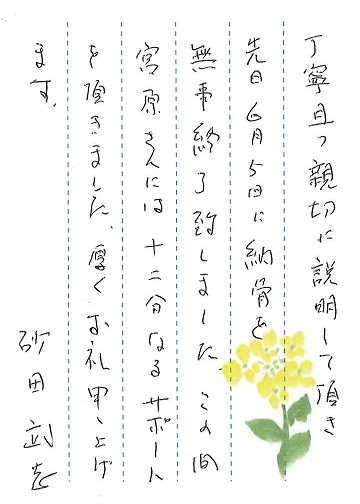 丁寧且つ親切に説明して頂き
先日6月5日に納骨を
無事終了致しました。この間
宮原さんには十二分なるサポート
を頂きました。厚くお礼申し上げ
ます。
砂田